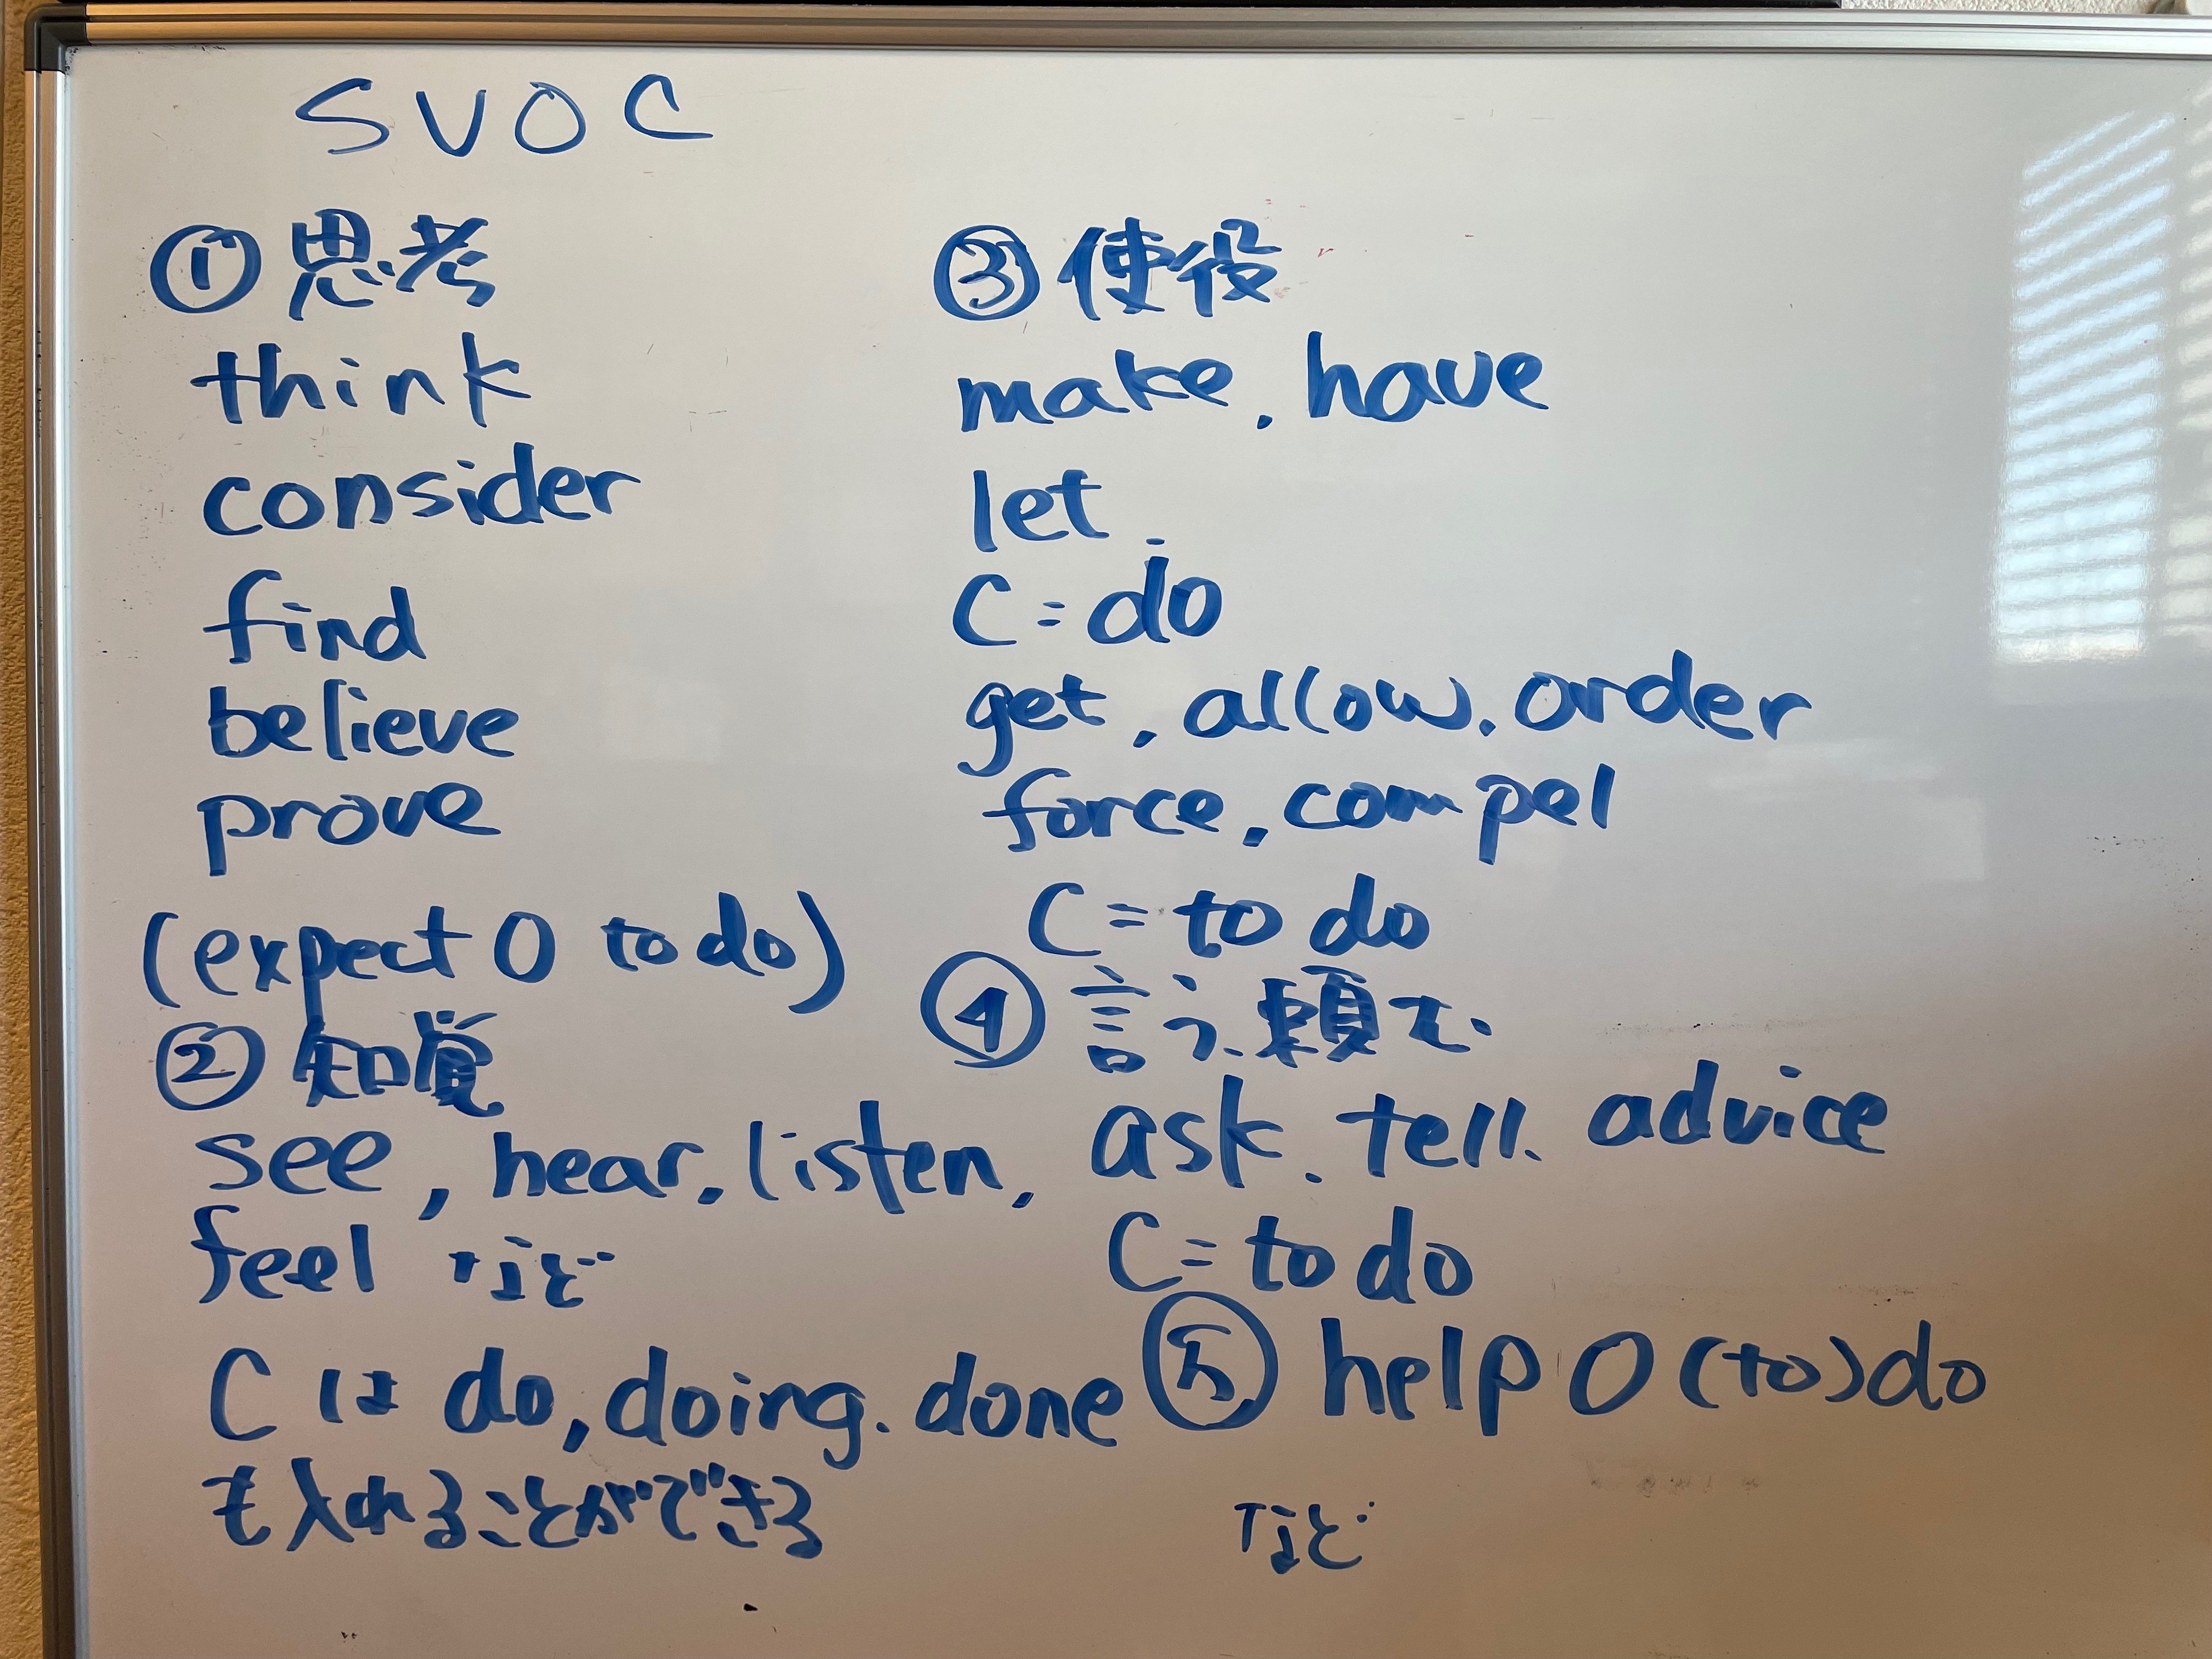 SVOC
①思考
think
consider
find
believe
prove
(expect O to do)
②知覚
see, hear, listen,
feel など
Cは do, doing. done
も入れることができる
③使役
make, have
let
C=do
get, allow. order
force, compel
C=to do
④言う、頼む
ask, tell, advice
C=to do
⑤ help O (to) do
など